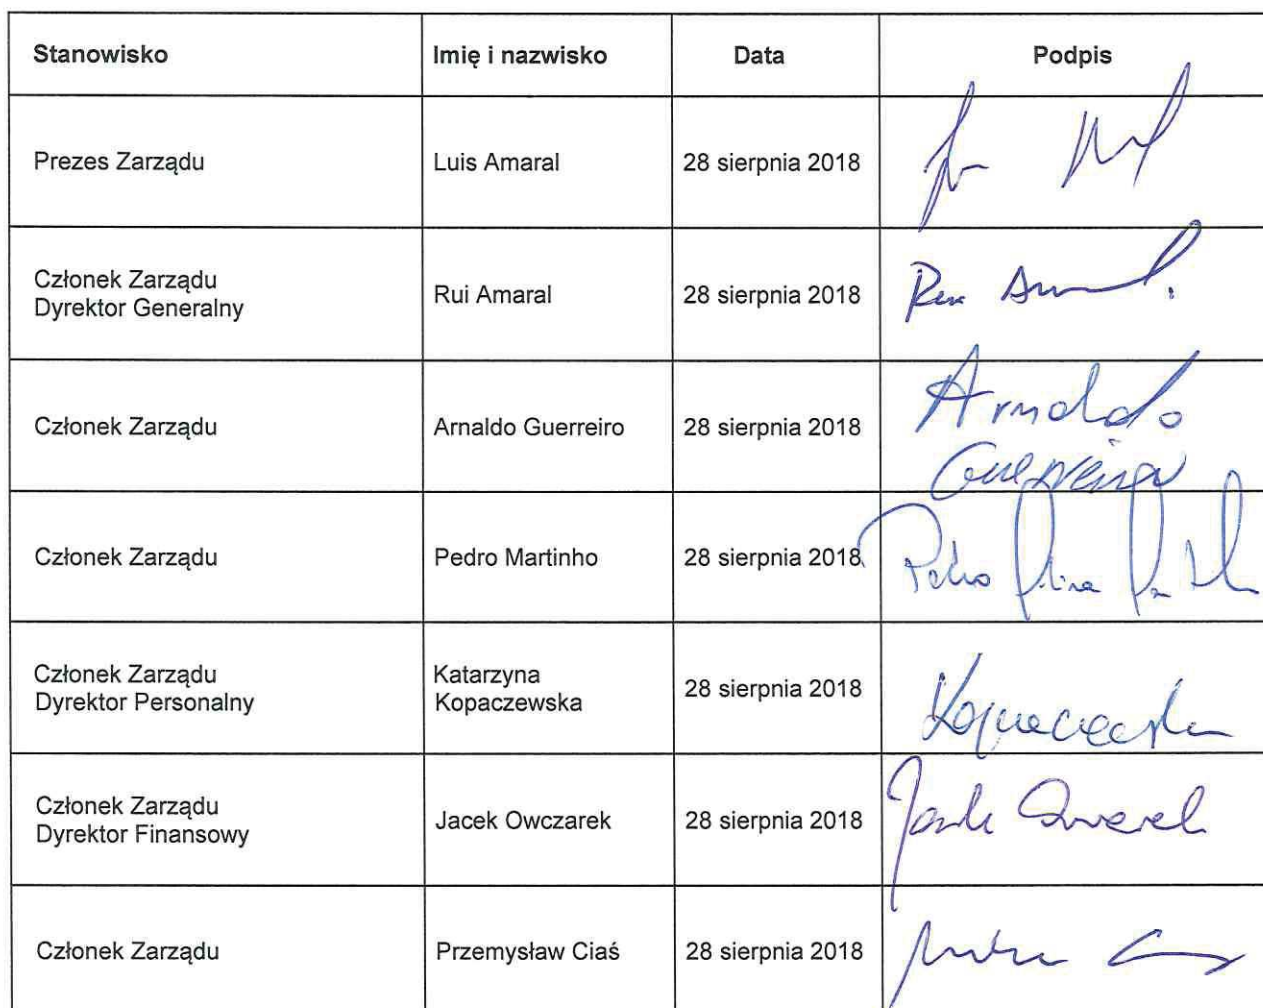 Stanowisko Imię i nazwisko Data Podpis
Prezes Zarządu Luis Amaral 28 sierpnia 2018
Członek Zarządu
Dyrektor Generalny Rui Amaral 28 sierpnia 2018
Członek Zarządu Arnaldo Guerreiro 28 sierpnia 2018 Arnaldo
Guerreiro
Członek Zarządu Pedro Martinho 28 sierpnia 2018 Pedro
Członek Zarządu
Dyrektor Personalny Katarzyna
Kopaczewska 28 sierpnia 2018
Członek Zarządu
Dyrektor Finansowy Jacek Owczarek 28 sierpnia 2018
Członek Zarządu Przemysław Ciaś 28 sierpnia 2018